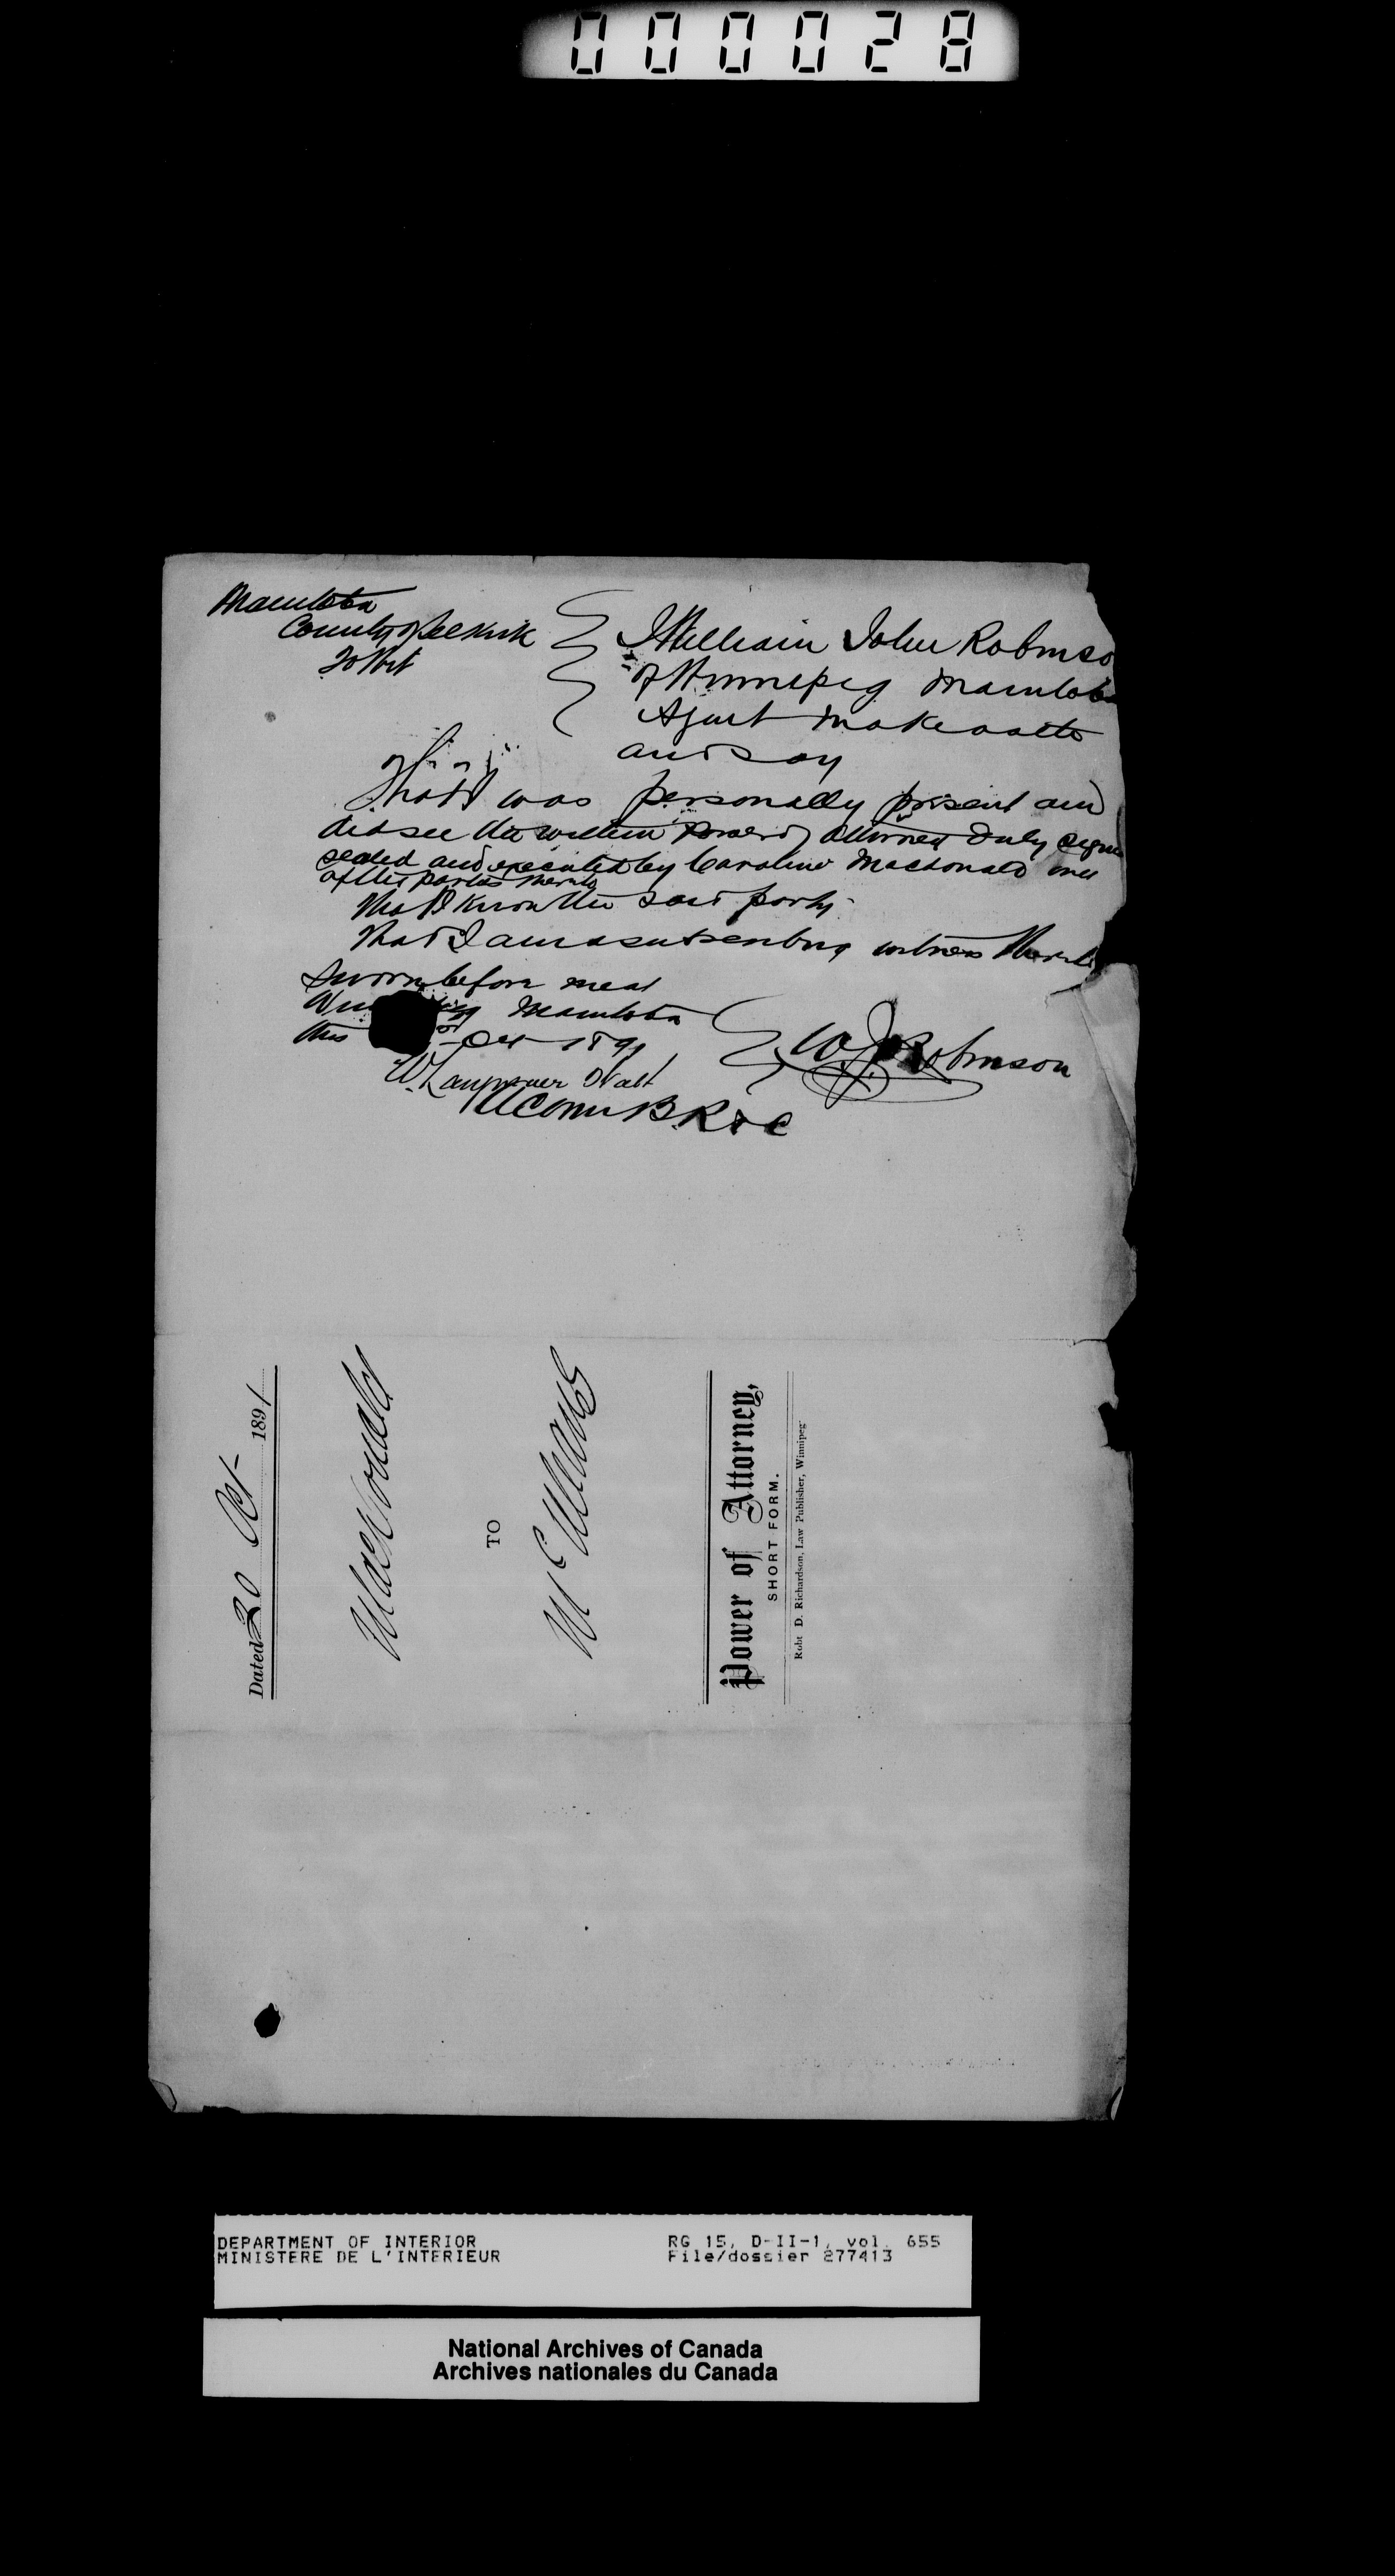 000028
Manitoba
County of Selkirk
To Wit
I William John Robinso
of Winnipeg Manitoba
Agent make oath
and say
That I was personally present and
did see the within Power of Attorney duly signe
sealed and executed by Caroline Macdonald one
of the parties thereto
That I know the said party
That I am a subscribing witness thereto
Sworn before me at
Manitoba
this Oct 1891
W J Robinson
A Com B.R. &c
Dated 20 Oct 1891
MacDonald
TO
Power of Attorney,
SHORT FORM.
Robt D. Richardson, Law Publisher, Winnipeg
DEPARTMENT OF INTERIOR RG 15, D-II-1, vol. 655
MINISTERE DE L'INTERIEUR File/dossier 277413
National Archives of Canada
Archives nationales du Canada